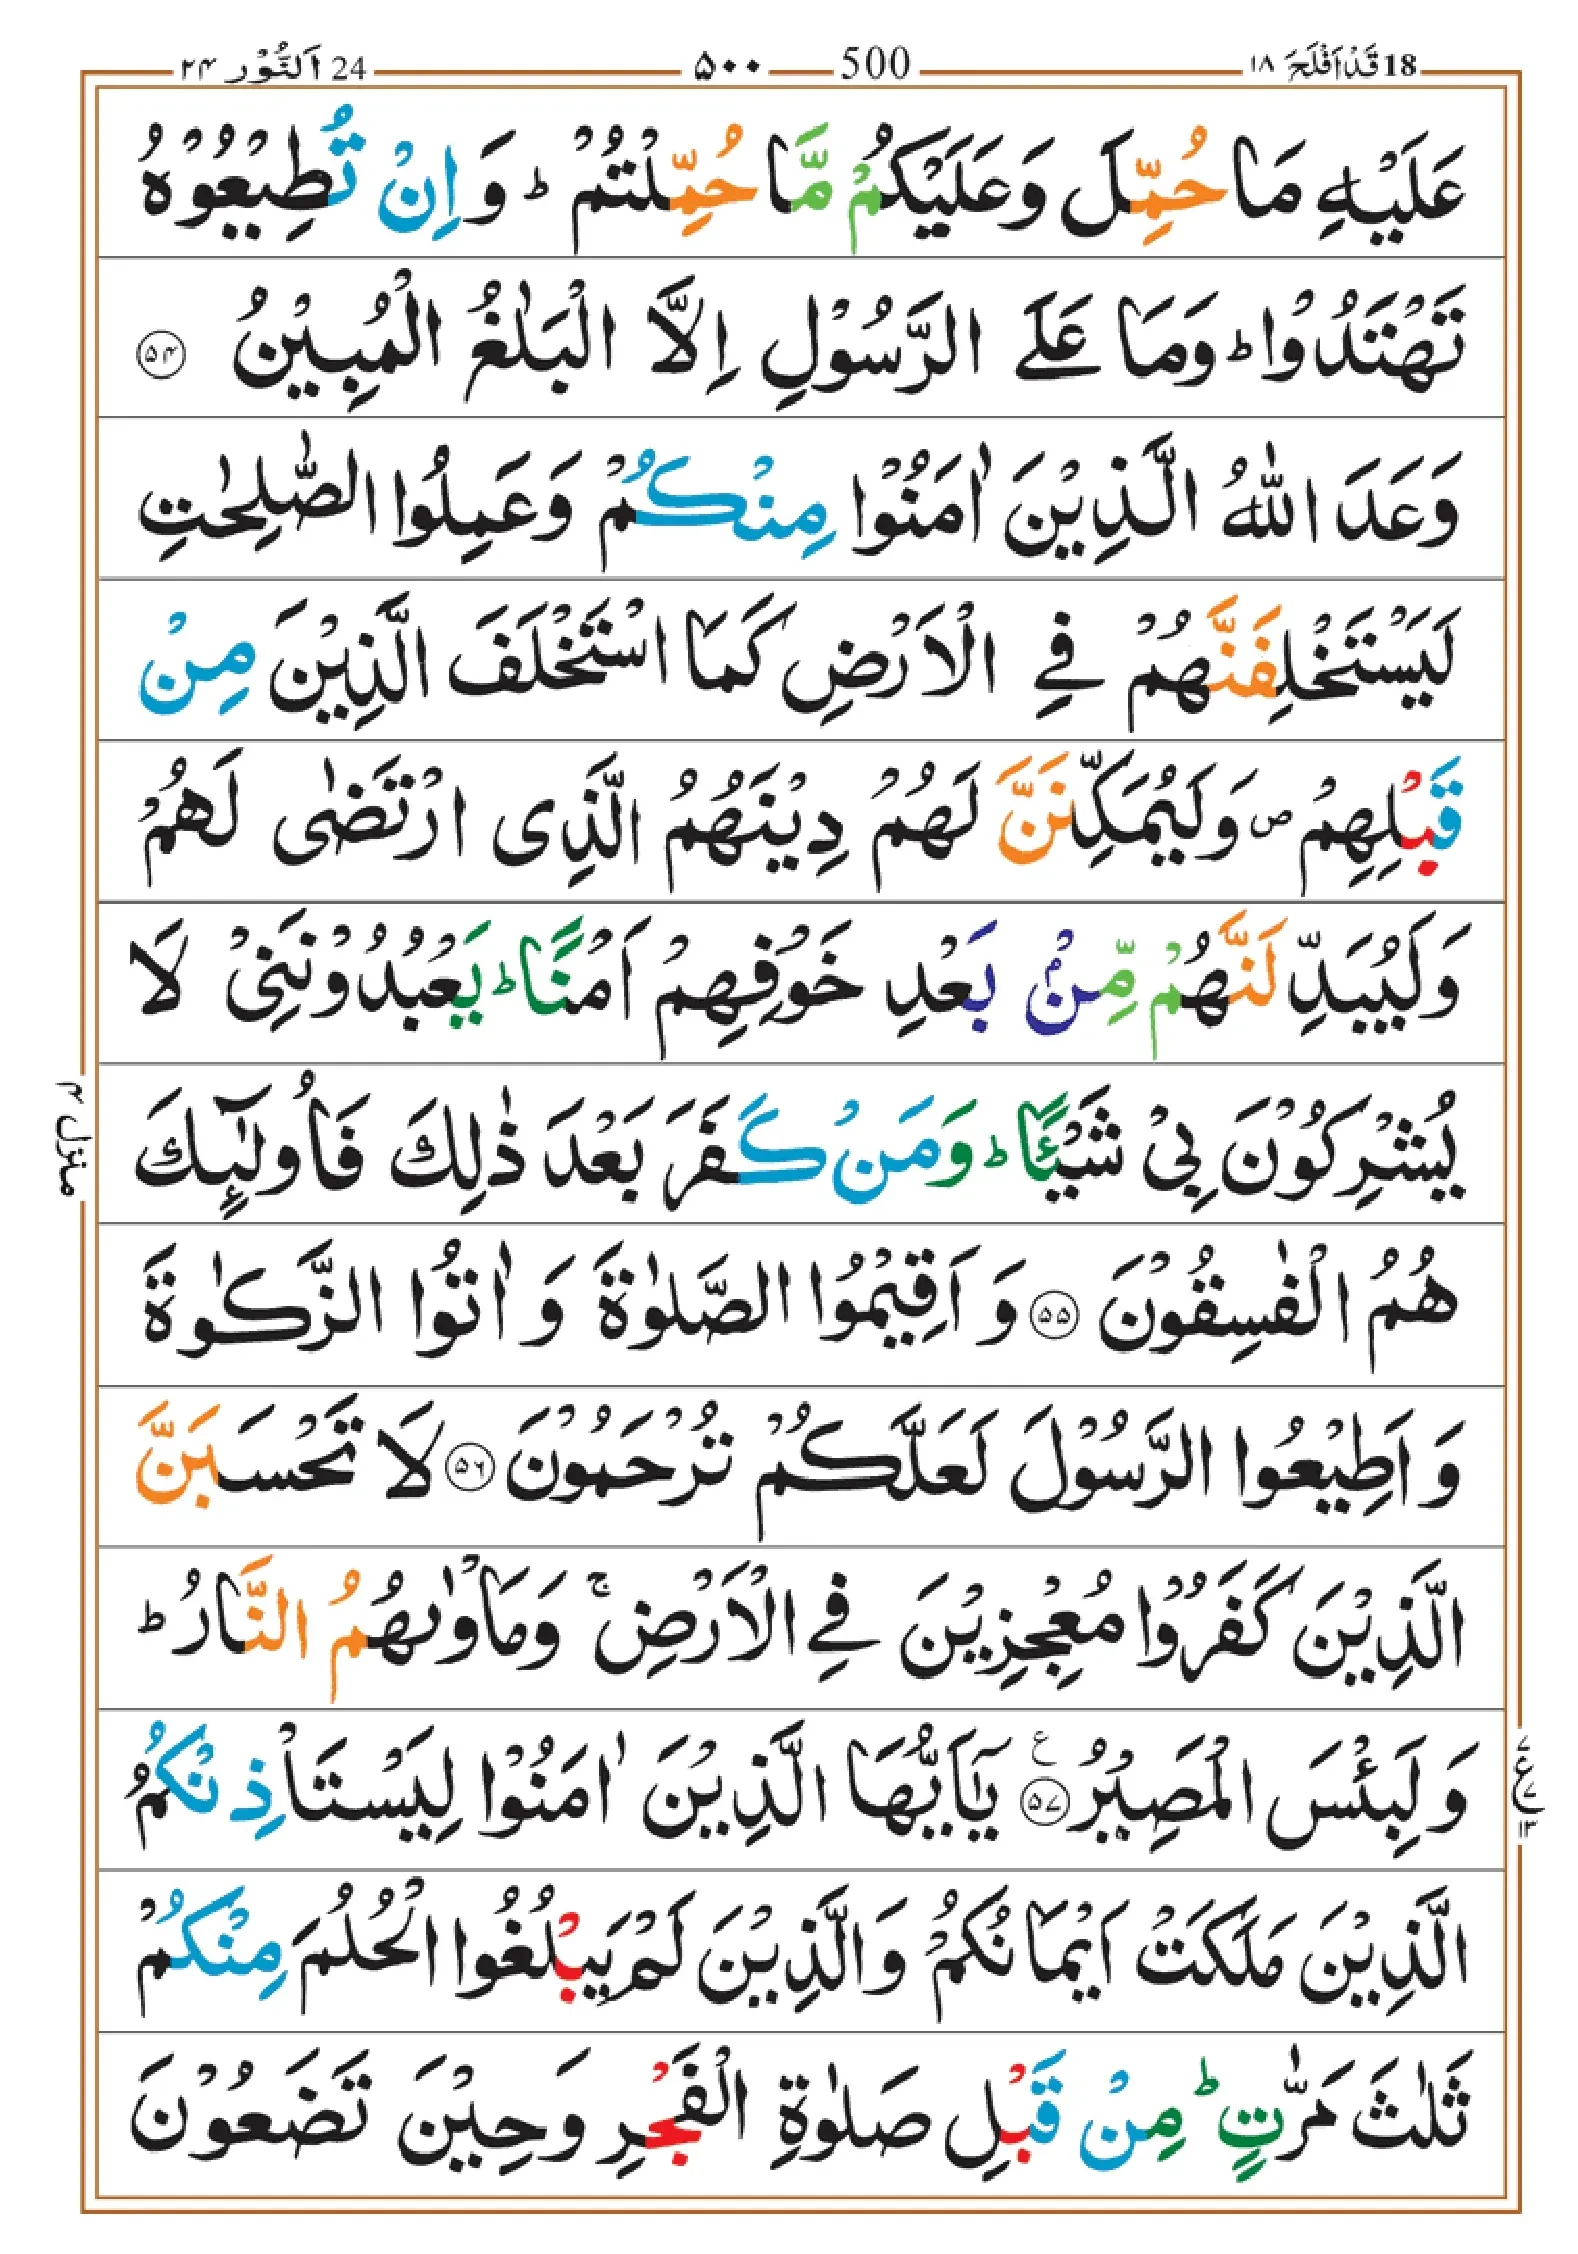 18 قَدْ اَفْلَحَ ۱۸
500 ۵۰۰
24 اَلنُّوْر ۲۴
عَلَيْهِ مَا حُمِّلَ وَعَلَيْكُمْ مَّا حُمِّلْتُمْ ؕ وَاِنْ تُطِيْعُوْهُ
تَهْتَدُوْا ؕ وَمَا عَلَى الرَّسُوْلِ اِلَّا الْبَلٰغُ الْمُبِيْنُ ۝۵۴
وَعَدَ اللّٰهُ الَّذِيْنَ اٰمَنُوْا مِنْكُمْ وَعَمِلُوا الصّٰلِحٰتِ
لَيَسْتَخْلِفَنَّهُمْ فِي الْاَرْضِ كَمَا اسْتَخْلَفَ الَّذِيْنَ مِنْ
قَبْلِهِمْ ۪ وَلَيُمَكِّنَنَّ لَهُمْ دِيْنَهُمُ الَّذِى ارْتَضٰى لَهُمْ
وَلَيُبَدِّلَنَّهُمْ مِّنْۢ بَعْدِ خَوْفِهِمْ اَمْنًا ؕ يَعْبُدُوْنَنِيْ لَا
يُشْرِكُوْنَ بِيْ شَيْـًٔا ؕ وَمَنْ كَفَرَ بَعْدَ ذٰلِكَ فَاُولٰٓئِكَ
هُمُ الْفٰسِقُوْنَ ۝۵۵ وَاَقِيْمُوا الصَّلٰوةَ وَاٰتُوا الزَّكٰوةَ
وَاَطِيْعُوا الرَّسُوْلَ لَعَلَّكُمْ تُرْحَمُوْنَ ۝۵۶ لَا تَحْسَبَنَّ
الَّذِيْنَ كَفَرُوْا مُعْجِزِيْنَ فِي الْاَرْضِ ۚ وَمَاْوٰىهُمُ النَّارُ ؕ
وَلَبِئْسَ الْمَصِيْرُ ۝۵۷ ع يٰۤاَيُّهَا الَّذِيْنَ اٰمَنُوْا لِيَسْتَاْذِنْكُمُ
الَّذِيْنَ مَلَكَتْ اَيْمَانُكُمْ وَالَّذِيْنَ لَمْ يَبْلُغُوا الْحُلُمَ مِنْكُمْ
ثَلٰثَ مَرّٰتٍ ؕ مِنْ قَبْلِ صَلٰوةِ الْفَجْرِ وَحِيْنَ تَضَعُوْنَ
منزل ۴
۷ ع ۷ ۱۳